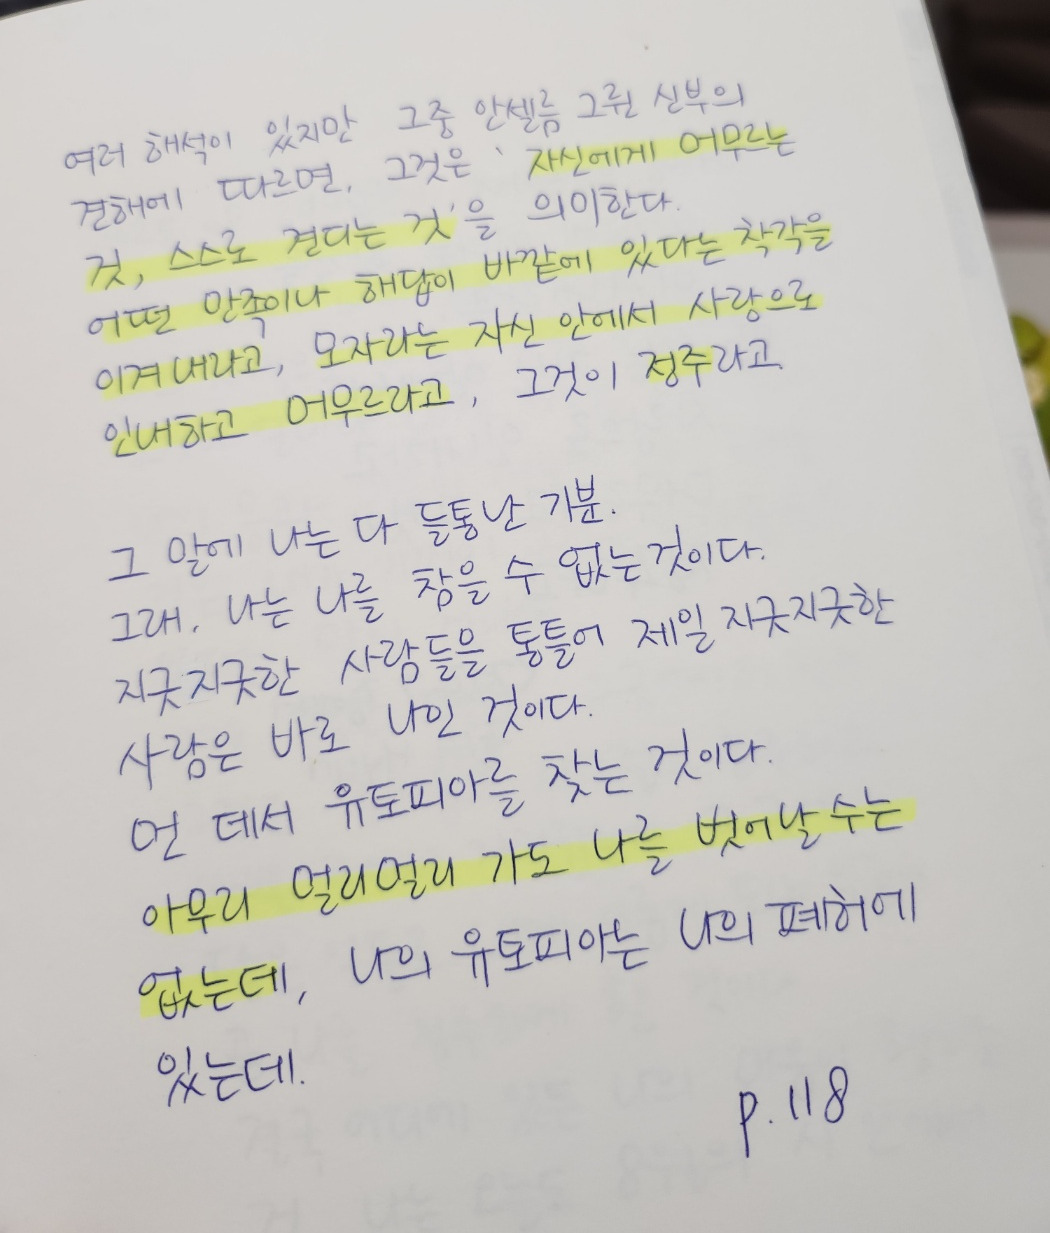 여러 해석이 있지만 그중 안셀름 그륀 신부의
견해에 따르면, 그것은 '자신에게 머무르는
것, 스스로 견디는 것'을 의미한다.
어떤 만족이나 해답이 바깥에 있다는 착각을
이겨내라고, 모자라는 자신 안에서 사랑으로
인내하고 머무르라고, 그것이 정주라고.
그 말에 나는 다 들통난 기분.
그래, 나는 나를 참을 수 없는 것이다.
지긋지긋한 사람들을 통틀어 제일 지긋지긋한
사람은 바로 나인 것이다.
먼 데서 유토피아를 찾는 것이다.
아무리 멀리멀리 가도 나를 벗어날 수는
없는데, 나의 유토피아는 나의 폐허에
있는데.
p.118